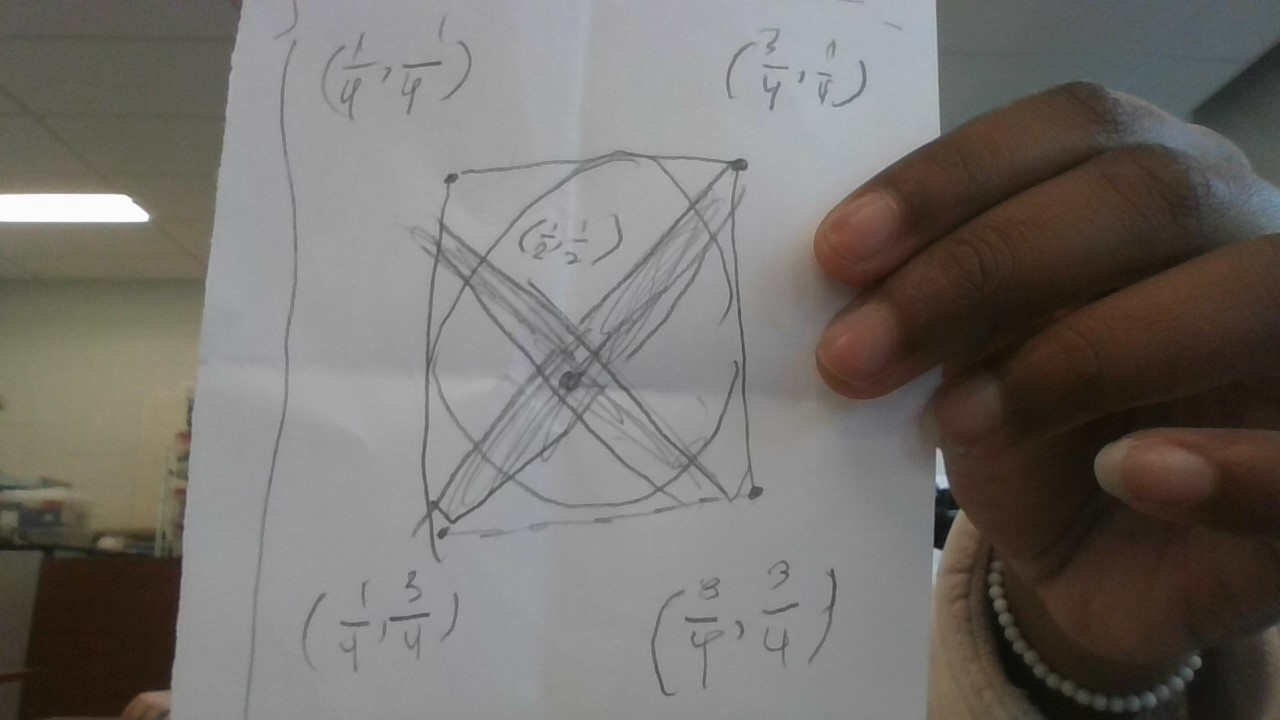 (1/4, 1/4) (3/4, 1/4)
(1/2, 1/2)
(1/4, 3/4) (3/4, 3/4)